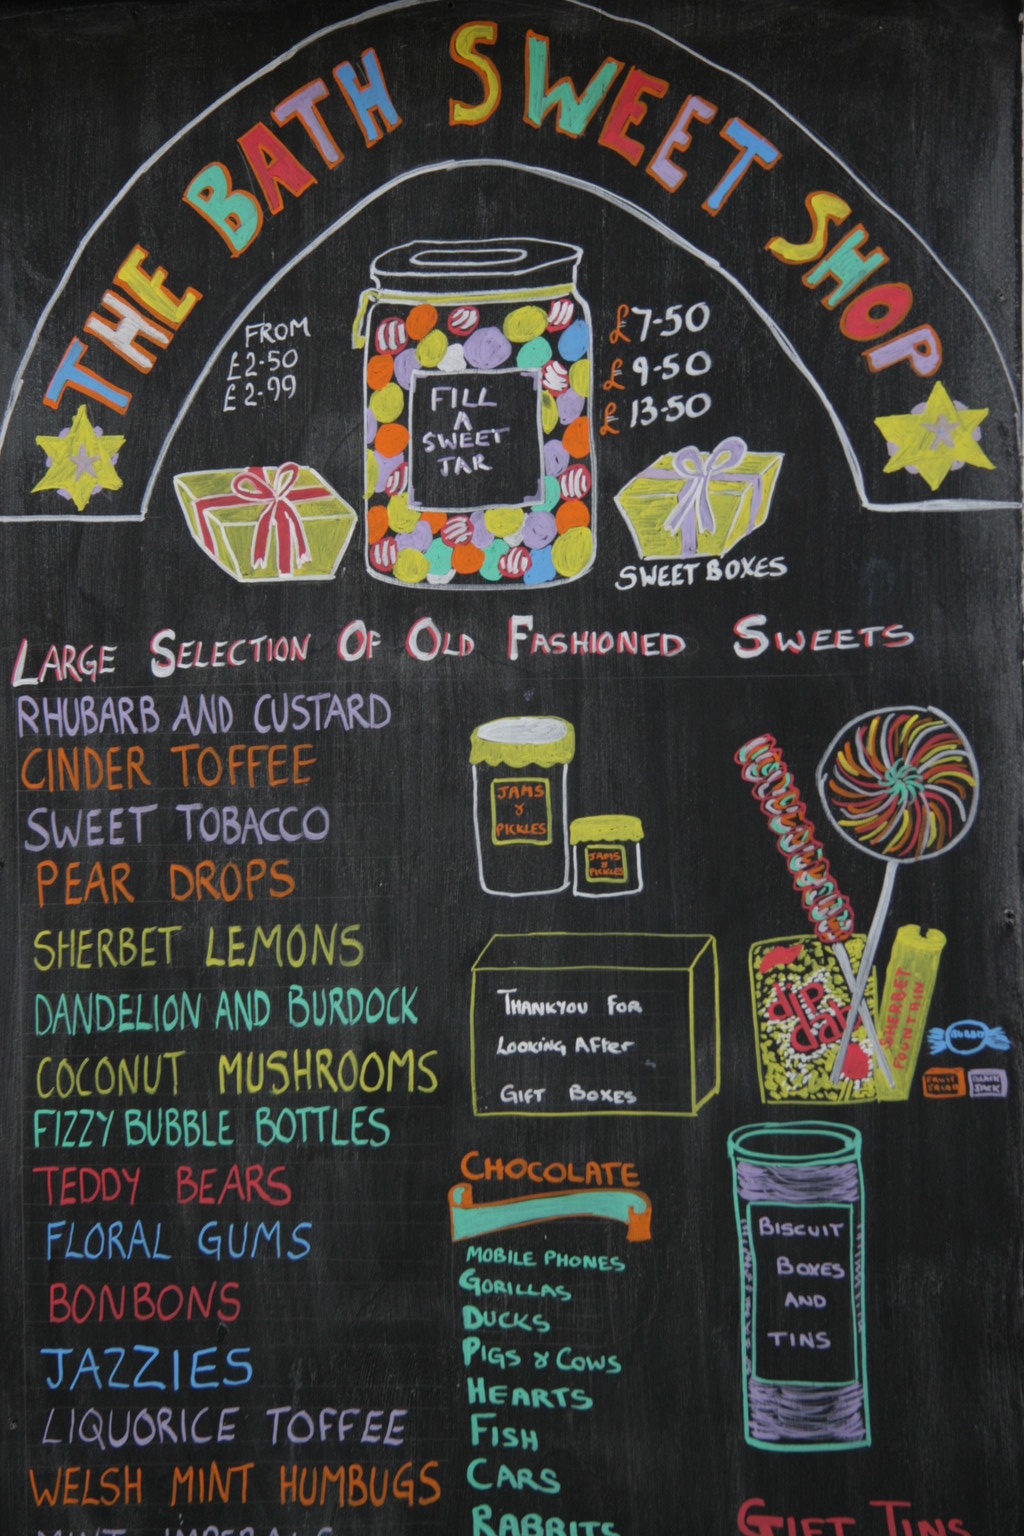 THE BATH SWEET SHOP
FROM
£2-50
£2-99
FILL
A
SWEET
JAR
£7-50
£9-50
£13-50
SWEET BOXES
LARGE SELECTION OF OLD FASHIONED SWEETS
RHUBARB AND CUSTARD
CINDER TOFFEE
SWEET TOBACCO
PEAR DROPS
SHERBET LEMONS
DANDELION AND BURDOCK
COCONUT MUSHROOMS
FIZZY BUBBLE BOTTLES
TEDDY BEARS
FLORAL GUMS
BONBONS
JAZZIES
LIQUORICE TOFFEE
WELSH MINT HUMBUGS
MINT IMPERIALS
JAMS
&
PICKLES
JAMS
&
PICKLES
THANKYOU FOR
LOOKING AFTER
GIFT BOXES
CHOCOLATE
MOBILE PHONES
GORILLAS
DUCKS
PIGS & COWS
HEARTS
FISH
CARS
RABBITS
DIP
DAB
SHERBET
FOUNTAIN
FRUIT
SALAD
BLACK
JACK
BISCUIT
BOXES
AND
TINS
GIFT TINS